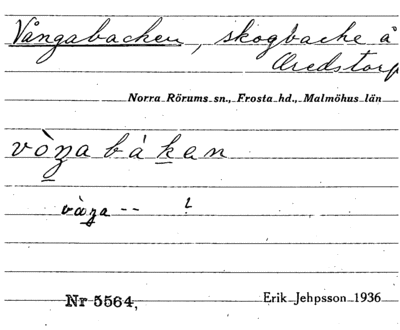 Vångabacken, skogbacke å
Åredstorp
Norra Rörums sn., Frosta hd., Malmöhus län
vòŋa bákan
vaŋa -- !
Nr 5564, Erik Jehpsson 1936